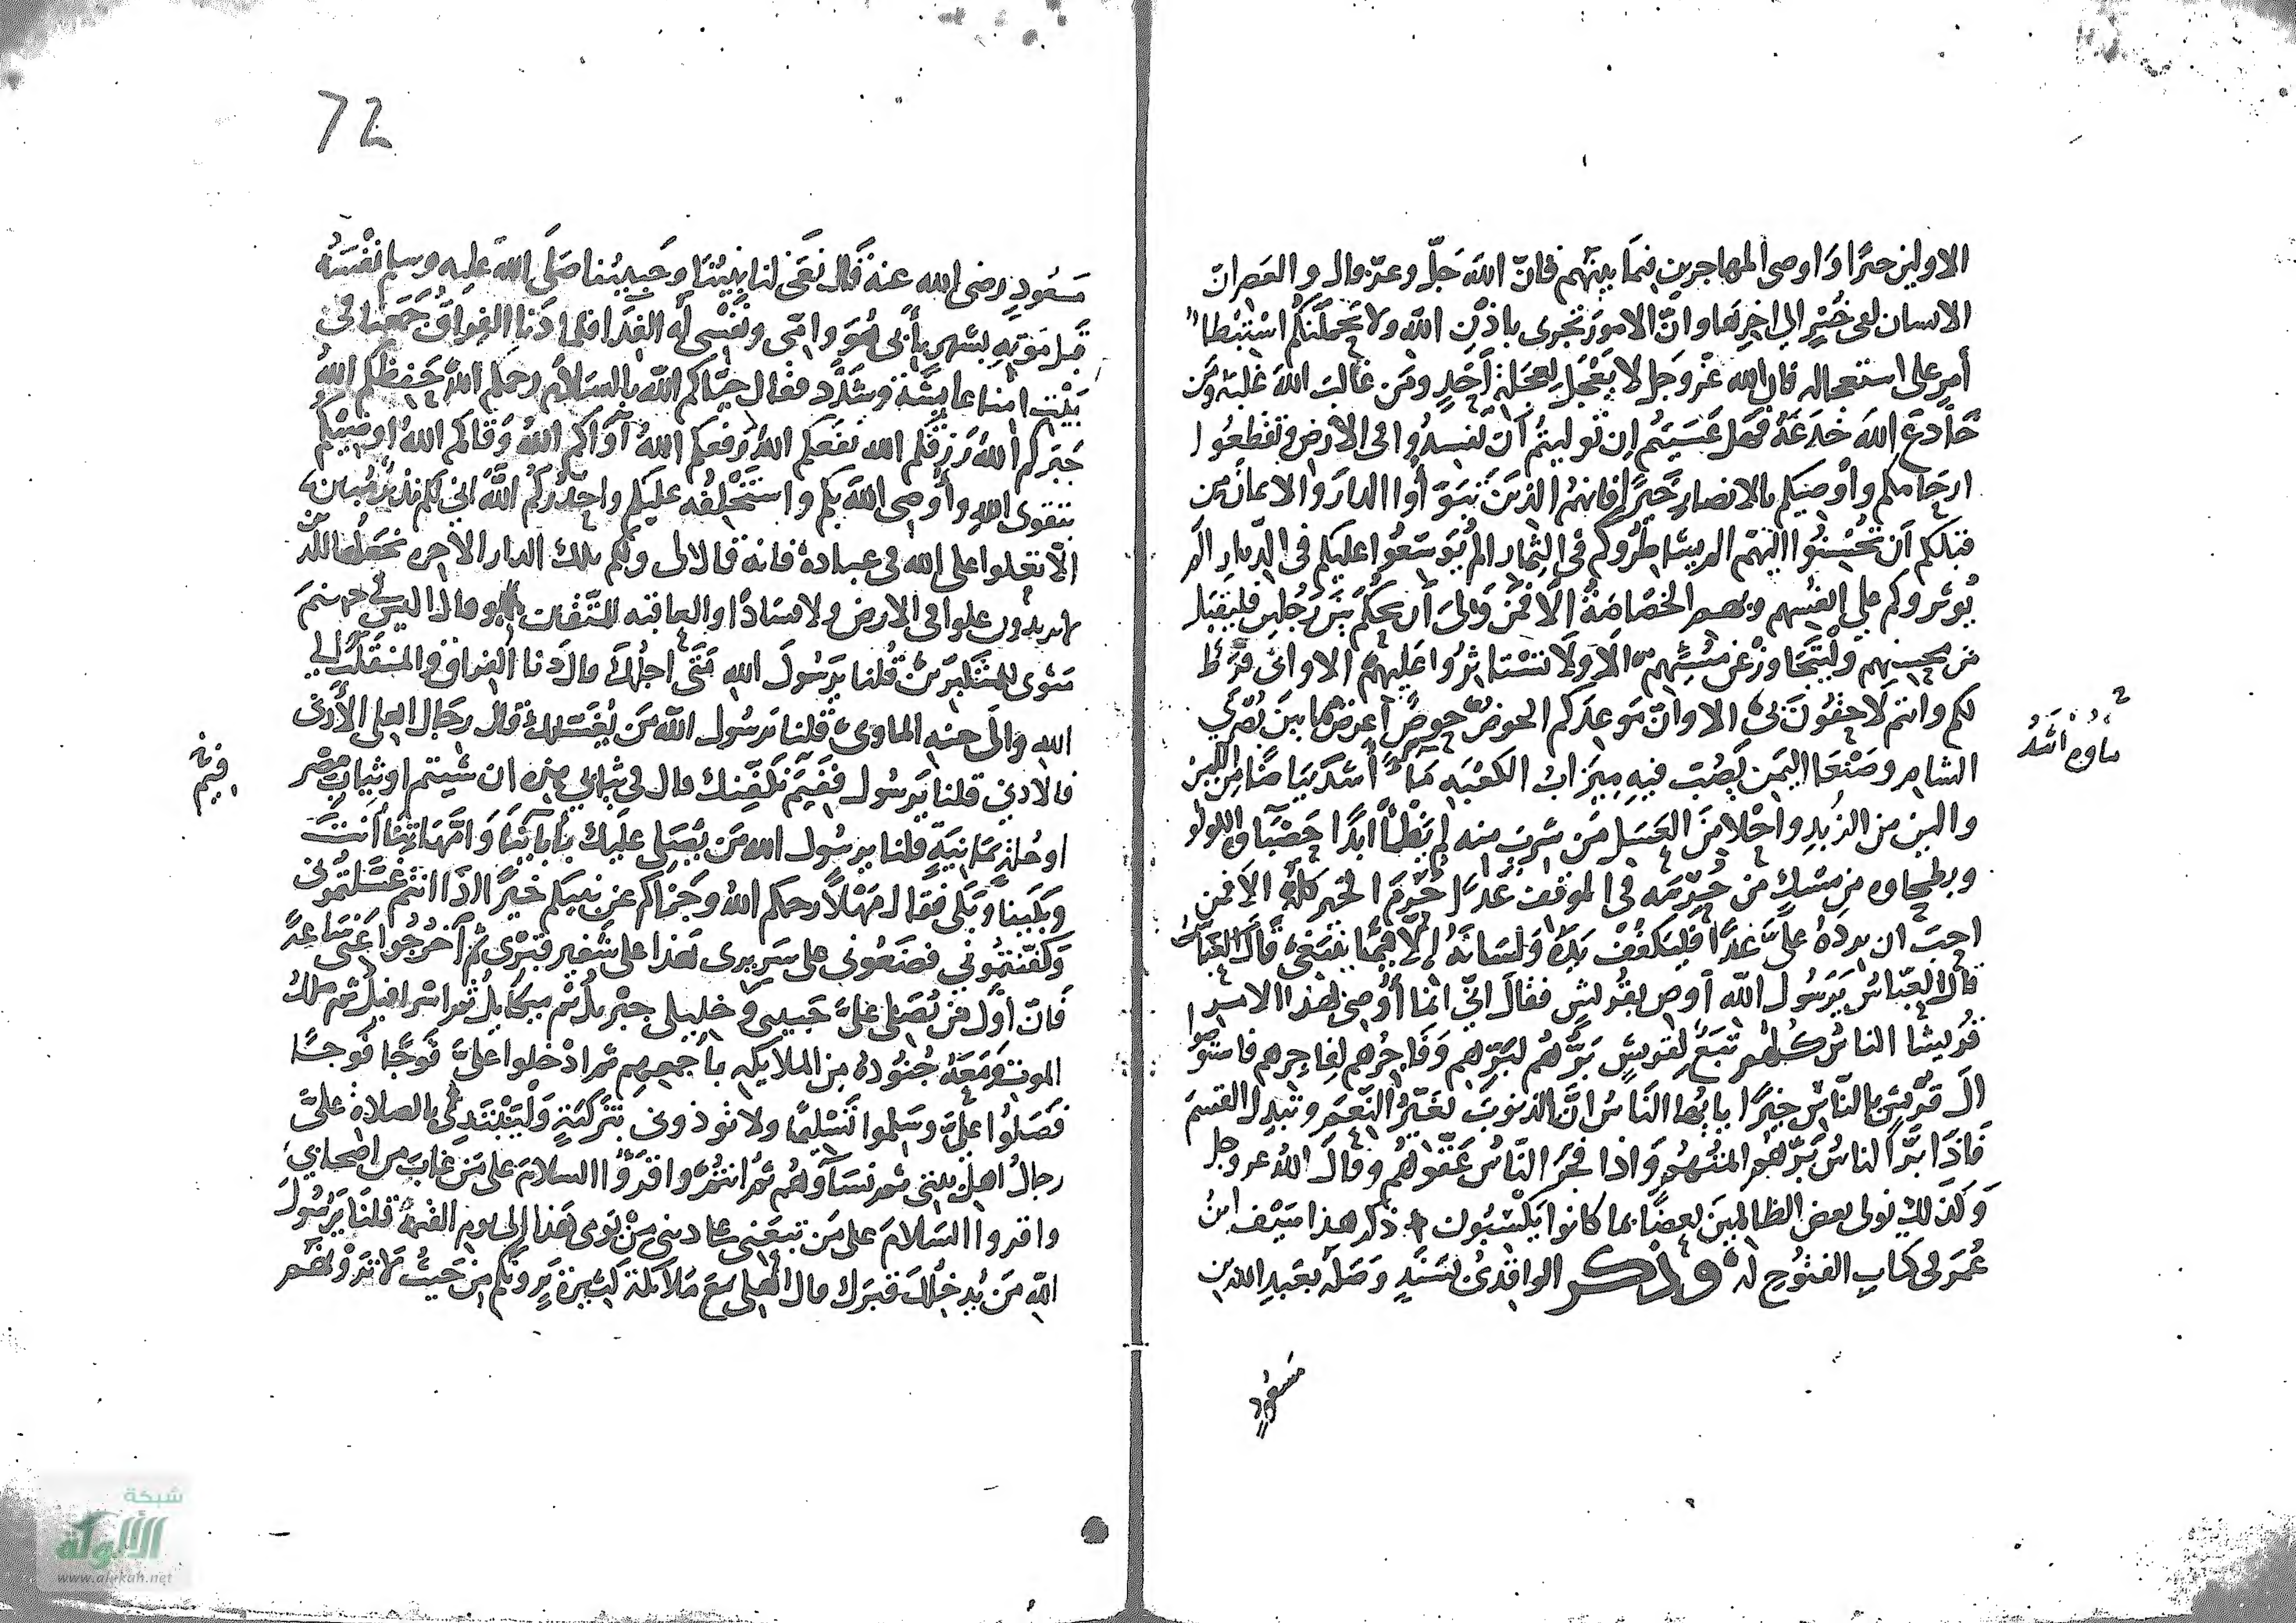 الاولين خيرًا وَاوصى المهاجرين فيمَا بينهم فانّ اللهَ جَلّ وعزّ قال والعصر انّ
الانسان لفى خُسْرٍ الى اخرِها وانّ الامورَ تجرى باذْنِ اللهِ ولا يَحملنّكُم اسْتبْطا
أمرٍ على استعجاله فان الله عَزْوجَل لا يَعْجَلُ لِعجَلةِ أحَدٍ ومَن غالبَ اللهَ غلبَهُ ومَن
خَادَعَ اللهَ خدَعَهُ فهَل عَسَيتم اِن تَوليتمُ اَن تفسِدُوا فى الارضِ وتقطعُوا
ارحَامكم وأوْصيكم بالانصارِ خَيرًا فانهمُ الذينَ تبَوّأوا الدارَ والايمانَ من
قبلكم اَن تُحْسِنُوا اليْهم الم يشَاطِرُوكم فى الثِمار الم يُوَسّعُوا عليكم فى الدّيارِ الم
يُوثروكم على انفسِهم وبهم الخصَاصَةُ الا فمَن وَلِىَ اَن يحكُمَ بَيْنَ رَجُلين فليقبَل
من محسِنِهم ولْيتجَاوزْ عن مُسِئِهم الا وَلا تسْتاثِرُوا عَليهم الا وانى فرَطٌ
لكم وانتم لاحِقُونَ بى الا وانّ مَوعِدَكم الحوضُ حوضٌ اعرضُ مما بينَ بُصْرَى
الشام وصَنْعَا اليمَن يَصُبّ فيهِ مِيزابُ الكعْبَه مَاء أشدّ بيَاضًا مِنَ اللبن
والين من الزُبدِ واحْلا مِنَ العَسَل مَن شرِبَ منه لم يَظْمأ ابدًا حَصْبَاوه اللولو
وبطحاوه من مِسْكٍ من حُرِمَه فى الموقف غَدًا حُرِمَ الخير كلّه الا فمن
احَبّ ان يردَهُ علَىّ غدًا فليكفُفْ يدَهُ وَلسَانَهُ إلّا فيمَا ينبَغى
قالَ العبّاسُ يرَسُول اللّه اَوصِ بقُريشٍ فقالَ انّى انما أُوصى بهذا الامر
قُريشًا الناسُ كلهم تبَعٌ لقريشٍ بَرُّهُم لبَرِّهم وَفاجِرُهم لفاجرهم فاستوصُوا
الَ قُرَيْشٍ بالنّاسِ خيرًا يا ايُها النَاسُ انَّ الذنوبَ تُغَيّرُ النّعِمَ وتبدِل القسمَ
فَاذا بَرّ الناسُ بَرّهُم ايمتُهم وَاذا فجَرَ النّاسُ عَقّوهُم وقالَ اللهُ عز وجل
وَكذلكَ نولى بعضَ الظالمِينَ بعضًا بما كانوا يَكْسِبُون ذكر هذا سَيْف ابنُ
عُمَر فى كتابِ الفتُوحِ لهُ وذكر الواقدىُ بسَنَدٍ وصَلَهُ بعَبدِ الله بن
ماوه اشَدُّ
مَسْعُودٍ
72
مَسْعُودٍ رضى الله عنهُ قال نَعَى لنا نبيّنَا وحَبِيبُنا صَلى اللهُ عليه وسلم نفْسَهُ
قبل مَوتِهِ بشهرٍ بأبى هُوَ وامّى ونَفْسى لهُ الفِدَا فلما دَنا الفِراقُ جَمَعنا فى
بَيْتِ امنا عَايشَة وشَدّدَ فقال حيّاكم اللهُ بالسَلام رحمكم اللهُ حَفِظكم اللهُ
جبَركم اللهُ رَزقكم الله نفَعكم اللهُ رفَعكم اللهُ آوَاكم اللهُ وَقاكم اللهُ اوصيْكم
بتقوى اللهِ وأُوصى اللهَ بكم واستَخْلفُه عليكم واحذّركُمُ اللهَ انى لكم نذيرٌ مُبينٌ
الّا تعْلوا على الله فى عبادهِ فانه قال لى ولكم تلك الدار الاخره نجْعَلُها للذين
لا يريدون علوا فى الارض ولا فسَادًا والعاقبه للمتّقين وقال اليسَ فى جهنمَ
مَثوى للمتكبرِينَ قُلنا يرَسُولَ اللهِ مَتَى اجلُكَ قال دنا الفراقُ والمنقلبُ الى
اللهِ والَى جنه الماوى قلنا يرَسُول الله مَن يُغَسّلُكَ قال رجَال اهلى الأدنى
فالادنى قلنا يَرسُول ففيمَ نكفِنك قال فى ثيابى هذه ان شيتم او ثِيابِ مصْر
او حُلةٍ يمَانيَةٍ قلنا يرسُول الله مَن يُصَلى عليك بأبايْنَا وَامَّهَاتِنَا أنتَ
وبَكينا وَبَكى فقال مَهْلًا رحمكم اللهُ وجَزاكم عن نبيكم خيرًا اذا انتم غسَّلتمُونى
وَكفّنتمُونى فضَعُونى على سَريرى هذا على شَفير قَبْرى ثم آخرُجُوا عَنى سَاعةً
فَانّ اوّلَ مَن يُصَلى علىَّ حَبيبى وخليلى جبْريلُ ثم ميكايلُ ثم اسْرافيلُ ثم ملكُ
الموت ومَعَهُ جُنُودُهُ مِنَ الملايكه باجمعِهِم ثم ادْخلوا علىَّ فَوجًا فَوجًا
فَصَلوُا علىَّ وسَلموا تَسْليمًا ولا توذونى بتَزكيَةٍ وَلْيَبْتَدِى بالصلاةِ علىَّ
رجالُ اهل بيتى ثم نسَآوهُم ثم انتُم واقرَؤُا السلامَ على مَن غابَ من اصحابى
واقروا السَلامَ على مَن تبعَنى على دينى مِنْ يَومى هَذا الى يوم القيمة قلنَا يَرسُولَ
اللهِ مَن يُدخلكَ قبرَكَ قال اهلى معَ مَلايكة كثيرة يَرونكم مِن حَيثُ لا ترَوْنهُم